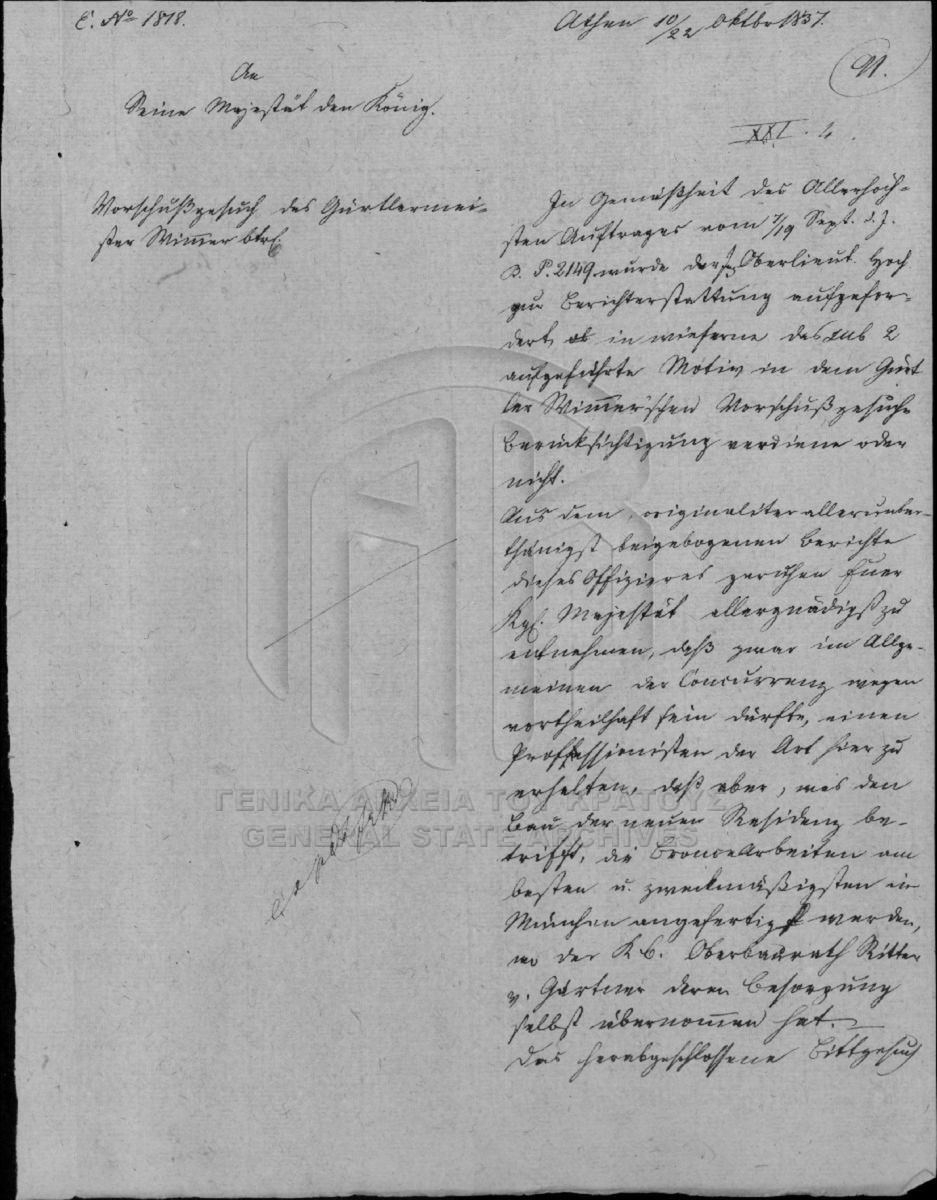 E. No 1818.
Athen 10/22 Oktbr 1837.
91.
An
Seine Majestät den König.
XXI. 4.
Vorschußgesuch des Gürtlermei-
ster Wimmer btrf.
In Gemäßheit des Allerhöch-
sten Auftrages vom 7/19 Sept. d. J.
P. 2149 wurde der Oberlieut. Hoch
zur Berichterstattung aufgefor-
dert in wieferne das sub 2
aufgeführte Motiv in dem Gürt
ler Wimmer'schen Vorschußgesuche
Berücksichtigung verdiene oder
nicht.
Aus dem, originaliter allerunter-
thänigst beigebogenen Berichte
dieses Offizieres geruhen Euer
Kgl. Majestät allergnädigst zu
entnehmen, daß zwar im Allge-
meinen der Concurrenz wegen
vortheilhaft sein dürfte, einen
Professionisten der Art hier zu
erhalten, daß aber, was den
Bau der neuen Residenz be-
trifft, die Broncearbeiten am
besten u. zweckmäßigsten in
München angefertigt werden,
wo der K. b. Oberbaurath Ritter
v. Gärtner deren Besorgung
selbst übernommen hat.
Das herabgeschlossene Bittgesuch
ΓΕΝΙΚΑ ΑΡΧΕΙΑ ΤΟΥ ΚΡΑΤΟΥΣ
GENERAL STATE ARCHIVES